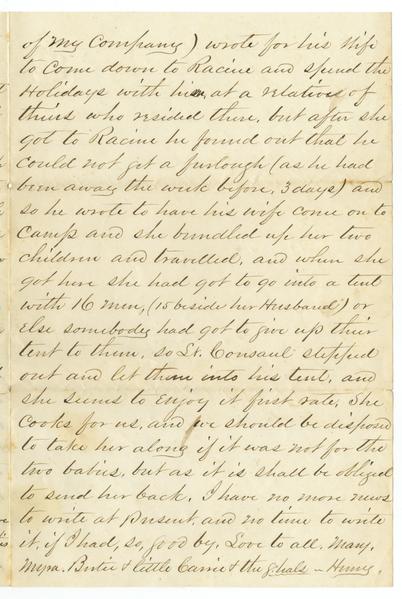 of my Company) wrote for his Wife
to come down to Racine and spend the
Holidays with him, at a relatives of
theirs who resided there, but after she
got to Racine he found out that he
could not get a furlough (as he had
been away the week before, 3 days) and
so he wrote to have his wife come on to
Camp and she bundled up her two
children and travelled, and when she
got here she had got to go into a tent
with 16 men, (15 beside her Husband) or
else somebody had got to give up their
tent to them, so Lt. Consaul stepped
out and let them into his tent, and
she seems to enjoy it first rate, She
cooks for us, and we should be disposed
to take her along if it was not for the
two babies, but as it is shall be obliged
to send her back. I have no more news
to write at present, and no time to write
it, if I had, so, good by. Love to all, Mary,
Myra. Bertie & little Carrie & the – Henry.